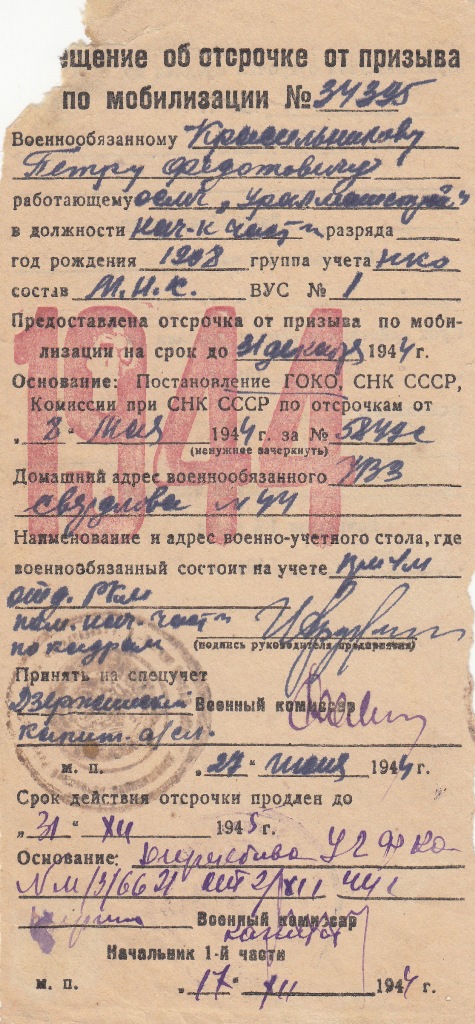 ещение об отсрочке от призыва
по мобилизации № 34395
Военнообязанному Красильникову
Петру Федотовичу
работающему осмч „Уралмашстрой"
в должности нач-к части разряда
год рождения 1908 группа учета нко
состав М.н.с. ВУС № 1
1944
Предоставлена отсрочка от призыва по моби-
лизации на срок до 31 декабря 1944 г.
Основание: Постановление ГОКО, СНК СССР,
Комиссии при СНК СССР по отсрочкам от
„8" мая 1944 г. за №
(ненужное зачеркнуть)
Домашний адрес военнообязанного УВЗ
Свердлова N 44
Наименование и адрес военно-учетного стола, где
военнообязанный состоит на учете
отд. РКМ
пом. нач. части
по кадрам
(подпись руководителя предприятия)
Принять на спецучет
Дзержинский Военный комиссар
капит. а/сл.
м. п. „27" июня 1944 г.
Срок действия отсрочки продлен до
„31" XII 1945 г.
Основание:
Военный комиссар
капитан
Начальник 1-й части
м. п. „17" XII 1944 г.